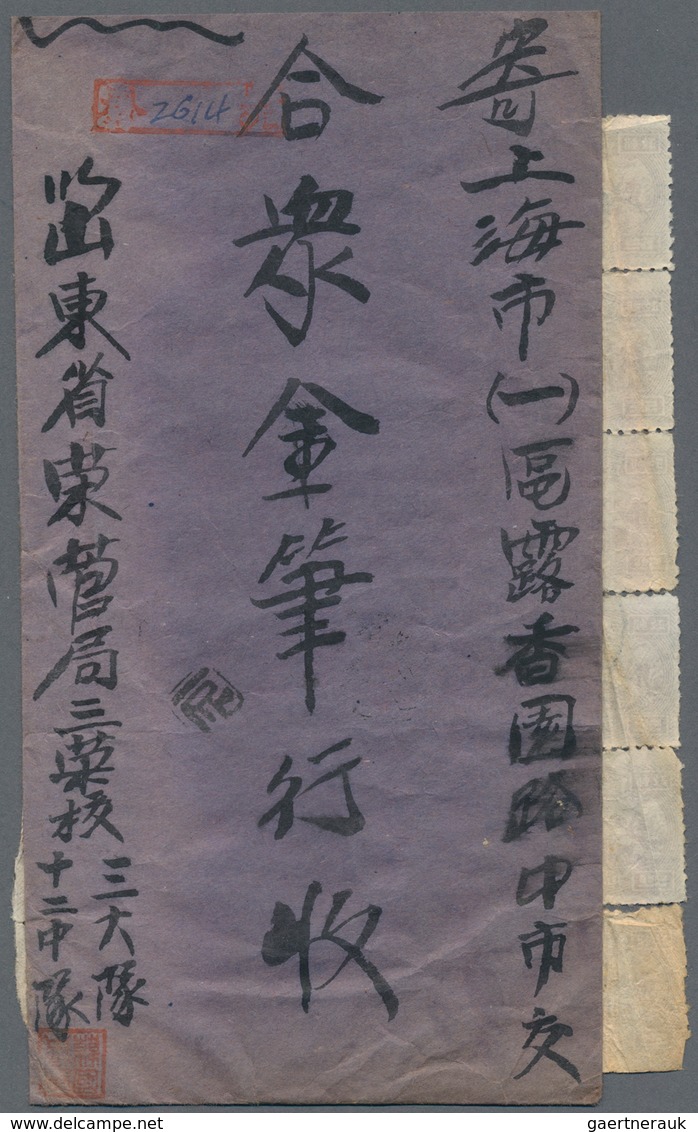 寄上海市(一)區露香園路中市交
合衆金筆行收
2614
東省東局三葉校
三大隊
十二中隊
gaertnerauk